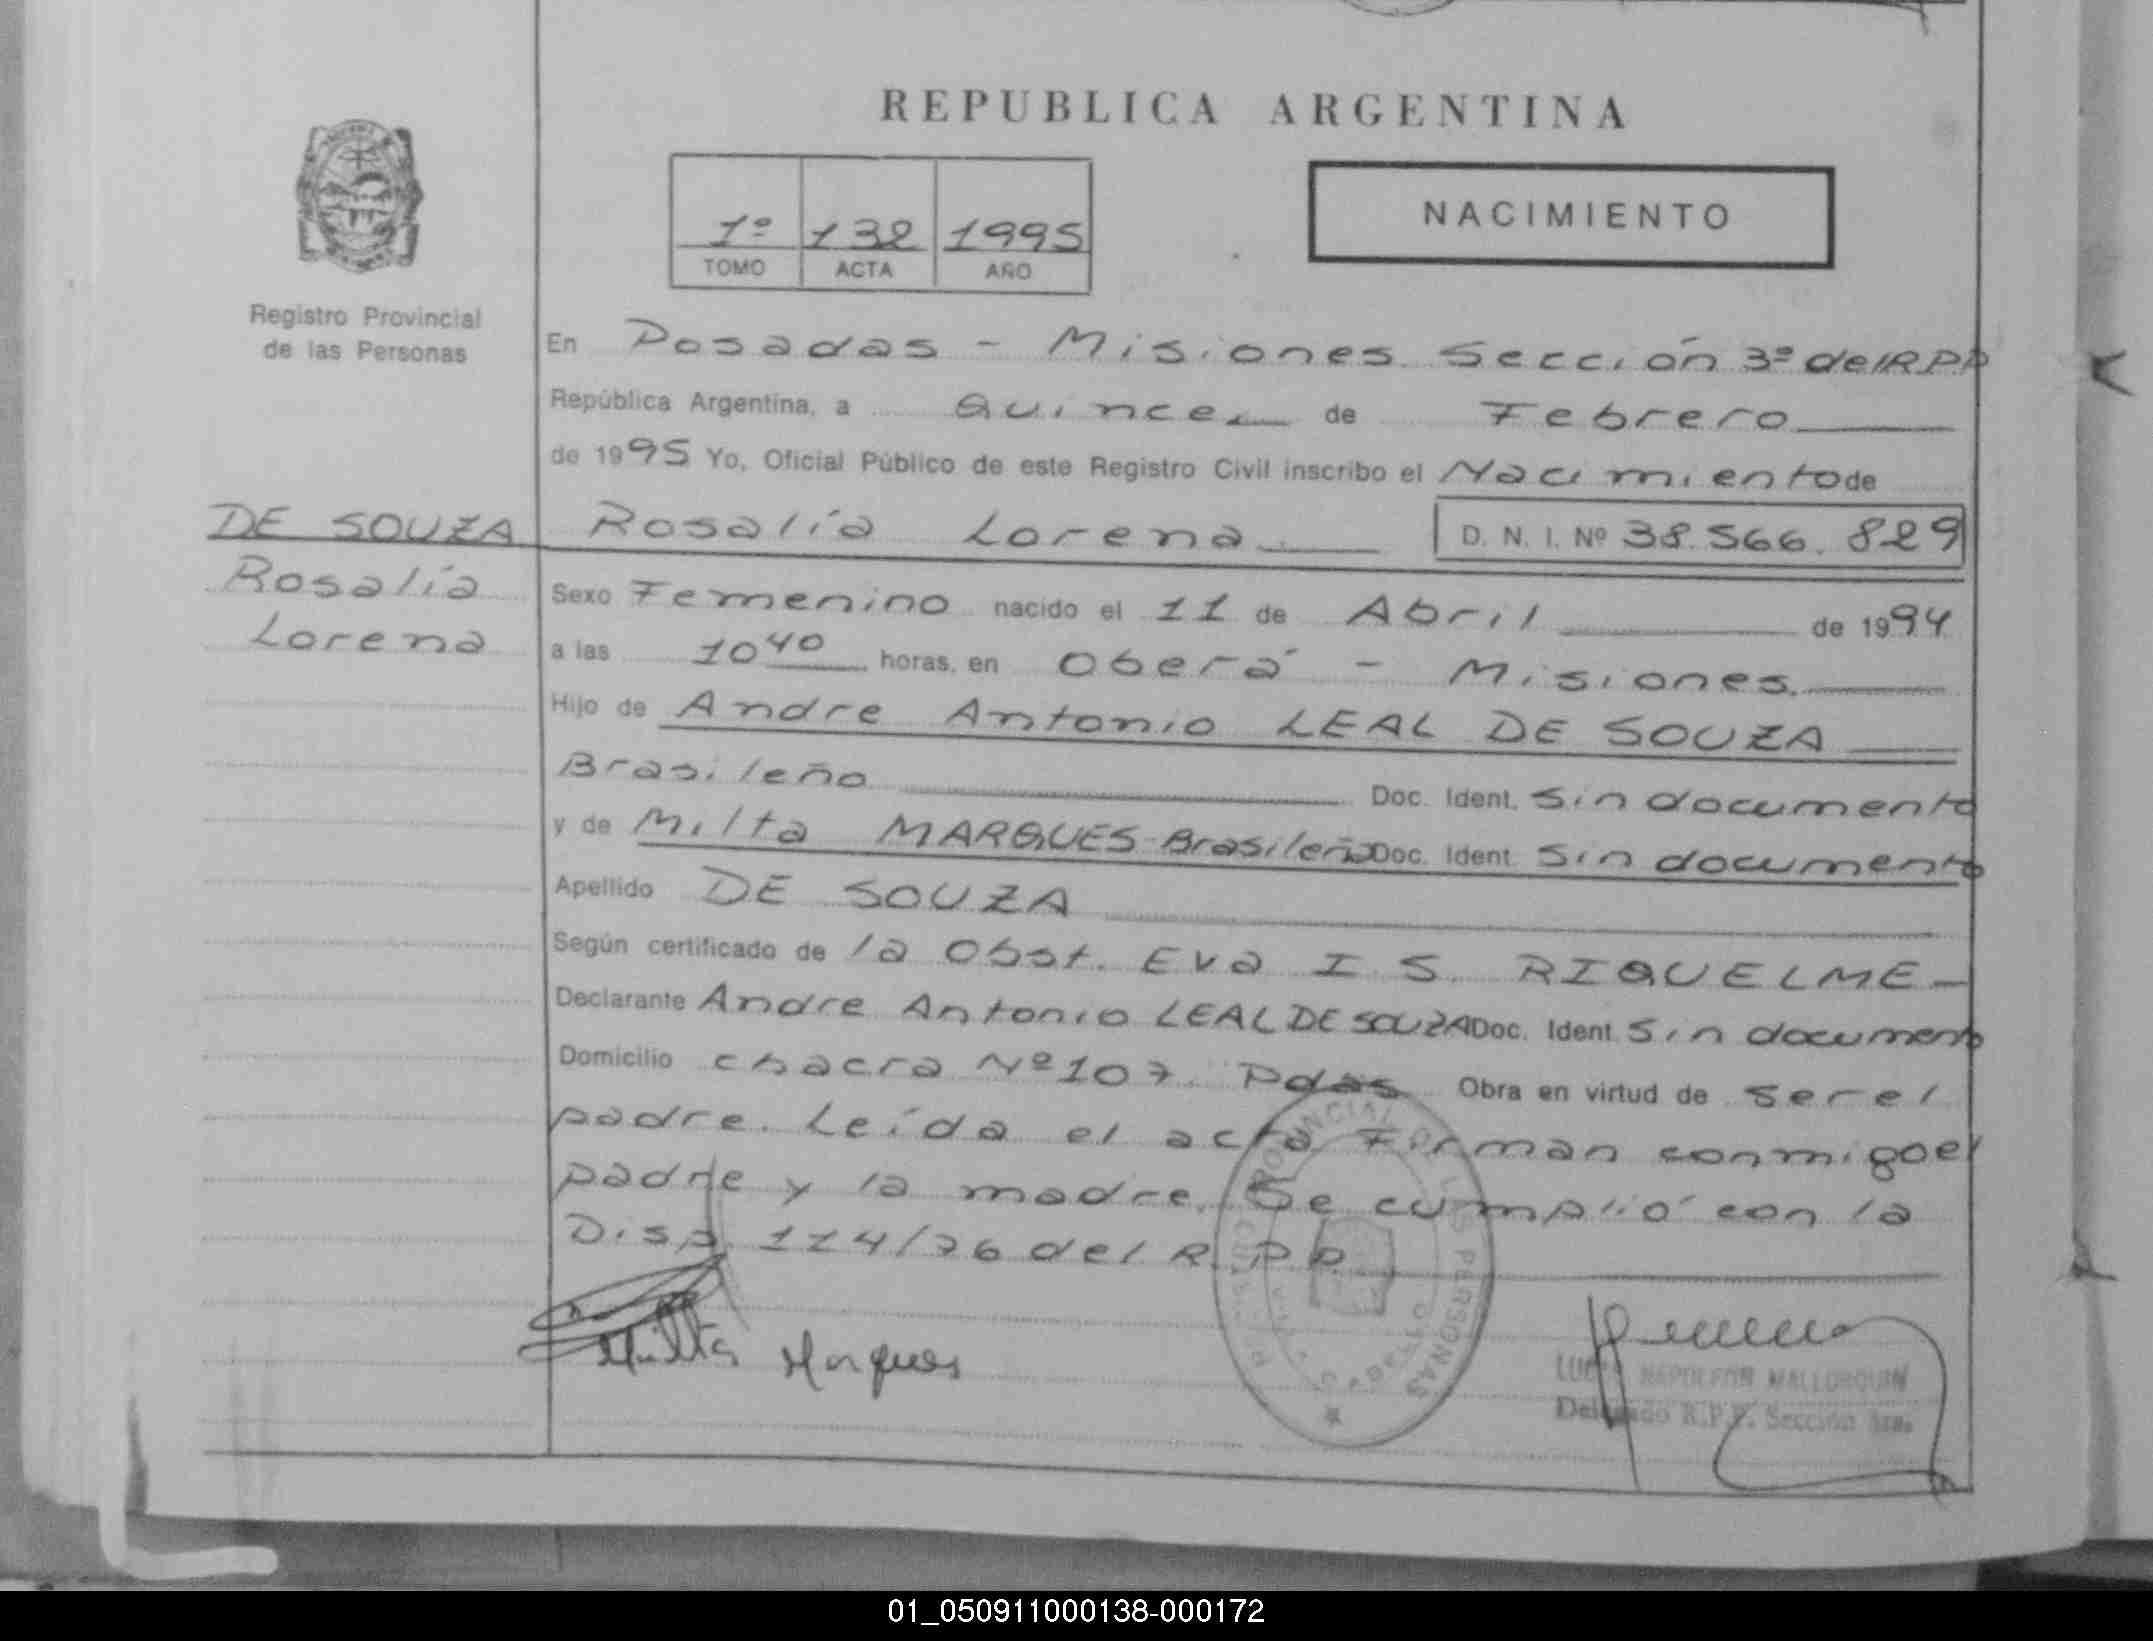 REPUBLICA ARGENTINA
1º 132 1995
TOMO ACTA AÑO
NACIMIENTO
Registro Provincial
de las Personas
En Posadas - Misiones Sección 3ª del R P P
República Argentina, a Quince de Febrero
de 1995 Yo, Oficial Público de este Registro Civil inscribo el Nacimiento de
DE SOUZA
Rosalía
Lorena
Rosalía Lorena D. N. I. Nº 38.566.829
Sexo Femenino nacido el 11 de Abril de 1994
a las 10 40 horas, en Oberá - Misiones.
Hijo de Andre Antonio LEAL DE SOUZA
Brasileño Doc. Ident. Sin documento
y de Milta MARQUES - Brasileña Doc. Ident. Sin documento
Apellido DE SOUZA
Según certificado de la Obst. Eva I. S. RIQUELME -
Declarante Andre Antonio LEAL DE SOUZA Doc. Ident. Sin documento
Domicilio chacra Nº 107. Pdas Obra en virtud de ser el
padre. Leída el acta Firman conmigo el
padre y la madre. Se cumplió con la
Disp. 114/76 del R P P
Milta Marques
PROVINCIAL DE LAS PERSONAS
NAPOLEON MALLORQUIN
Delegado R.P.P. Sección 3ra.
01_050911000138-000172